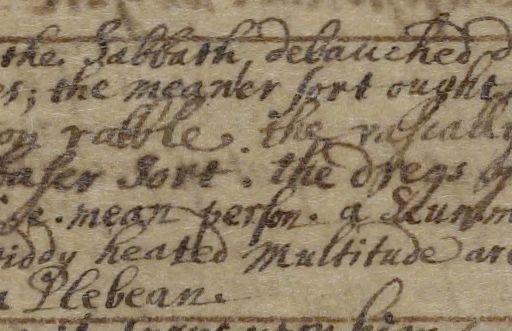 the Sabbath, debauched d
es; the meaner sort ought
on rabble. the rascally
baser Sort. the dregs of
mean person. a Scumm
iddy heated Multitude are
a Plebean.